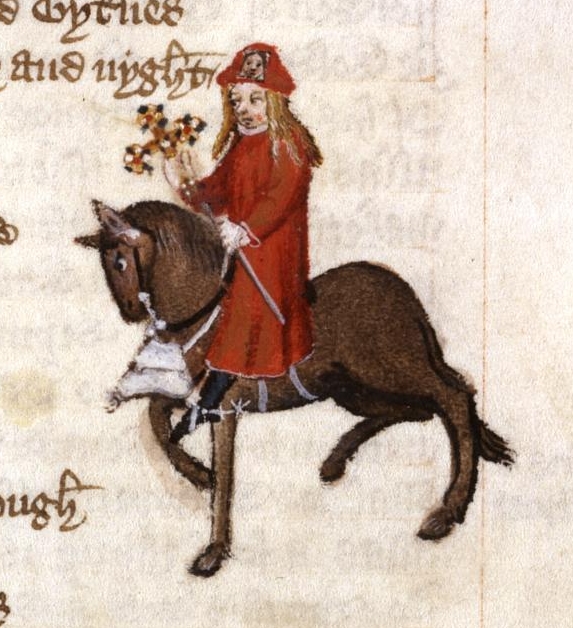 d Cytues
and nyght
ough